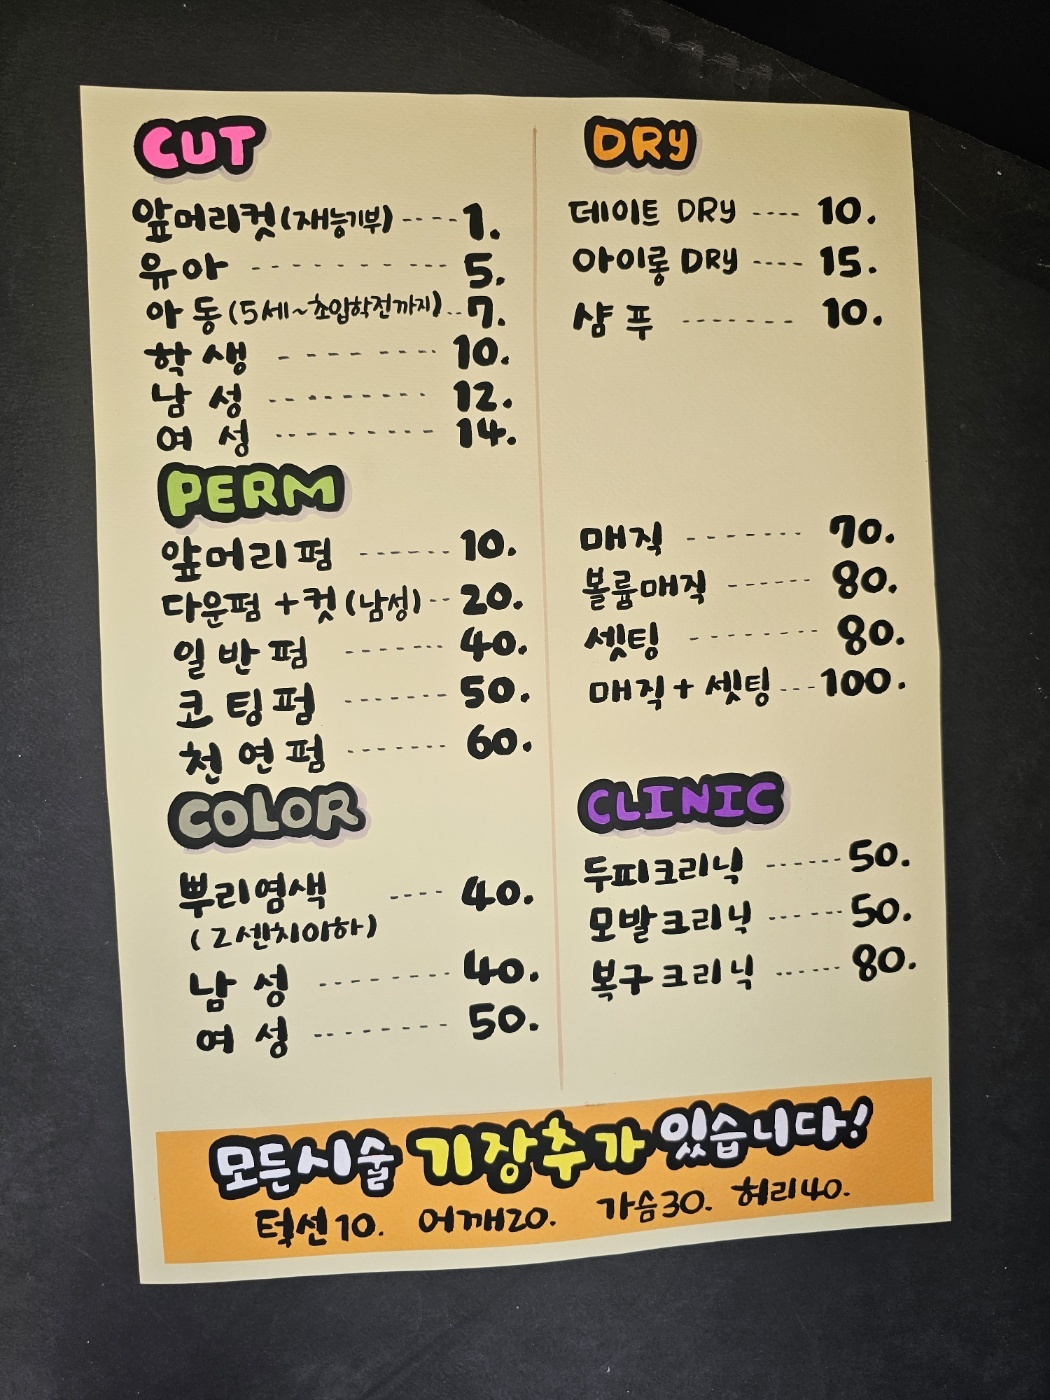 CUT
앞머리컷(재능기부) ---- 1.
유아 --------- 5.
아동(5세~초입학전까지)..7.
학생 - - - - - --. 10.
남성 --------- 12.
여성 --------- 14.
PERM
앞머리펌 ------ 10.
다운펌+컷(남성) -- 20.
일반펌 ------- 40.
코팅펌 ------- 50.
천연펌 ------- 60.
COLOR
뿌리염색 ---- 40.
(2센치이하)
남성 --------- 40.
여성 --------- 50.
DRY
데이트 DRY ---- 10.
아이롱 DRY ---- 15.
샴푸 ------- 10.
매직 ------- 70.
볼륨매직 ------ 80.
셋팅 -------- 80.
매직+셋팅 --- 100.
CLINIC
두피크리닉 ------ 50.
모발크리닉 ------ 50.
복구크리닉 ------ 80.
모든시술 기장추가 있습니다!
턱선10. 어깨20. 가슴30. 허리40.